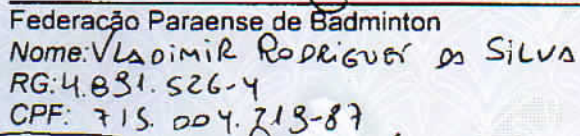 Federação Paraense de Badminton
Nome: VLADIMIR RODRIGUES DA SILVA
RG: 4.891.526-4
CPF: 715.004.219-87